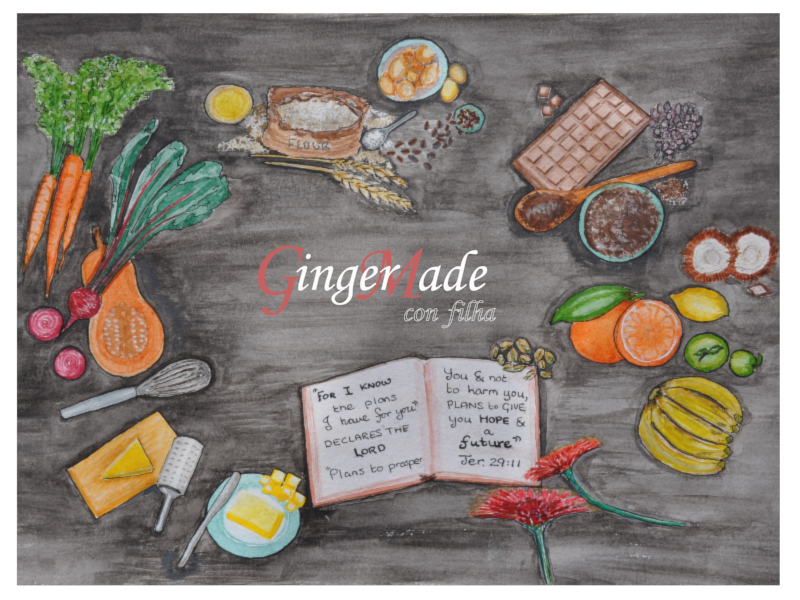 FLOUR
GingerMade
con filha
"FOR I KNOW
the plans
I have for you"
DECLARES THE
LORD
"Plans to prosper
You & not
to harm you,
PLANS to GIVE
you HOPE &
a
future"
Jer. 29:11